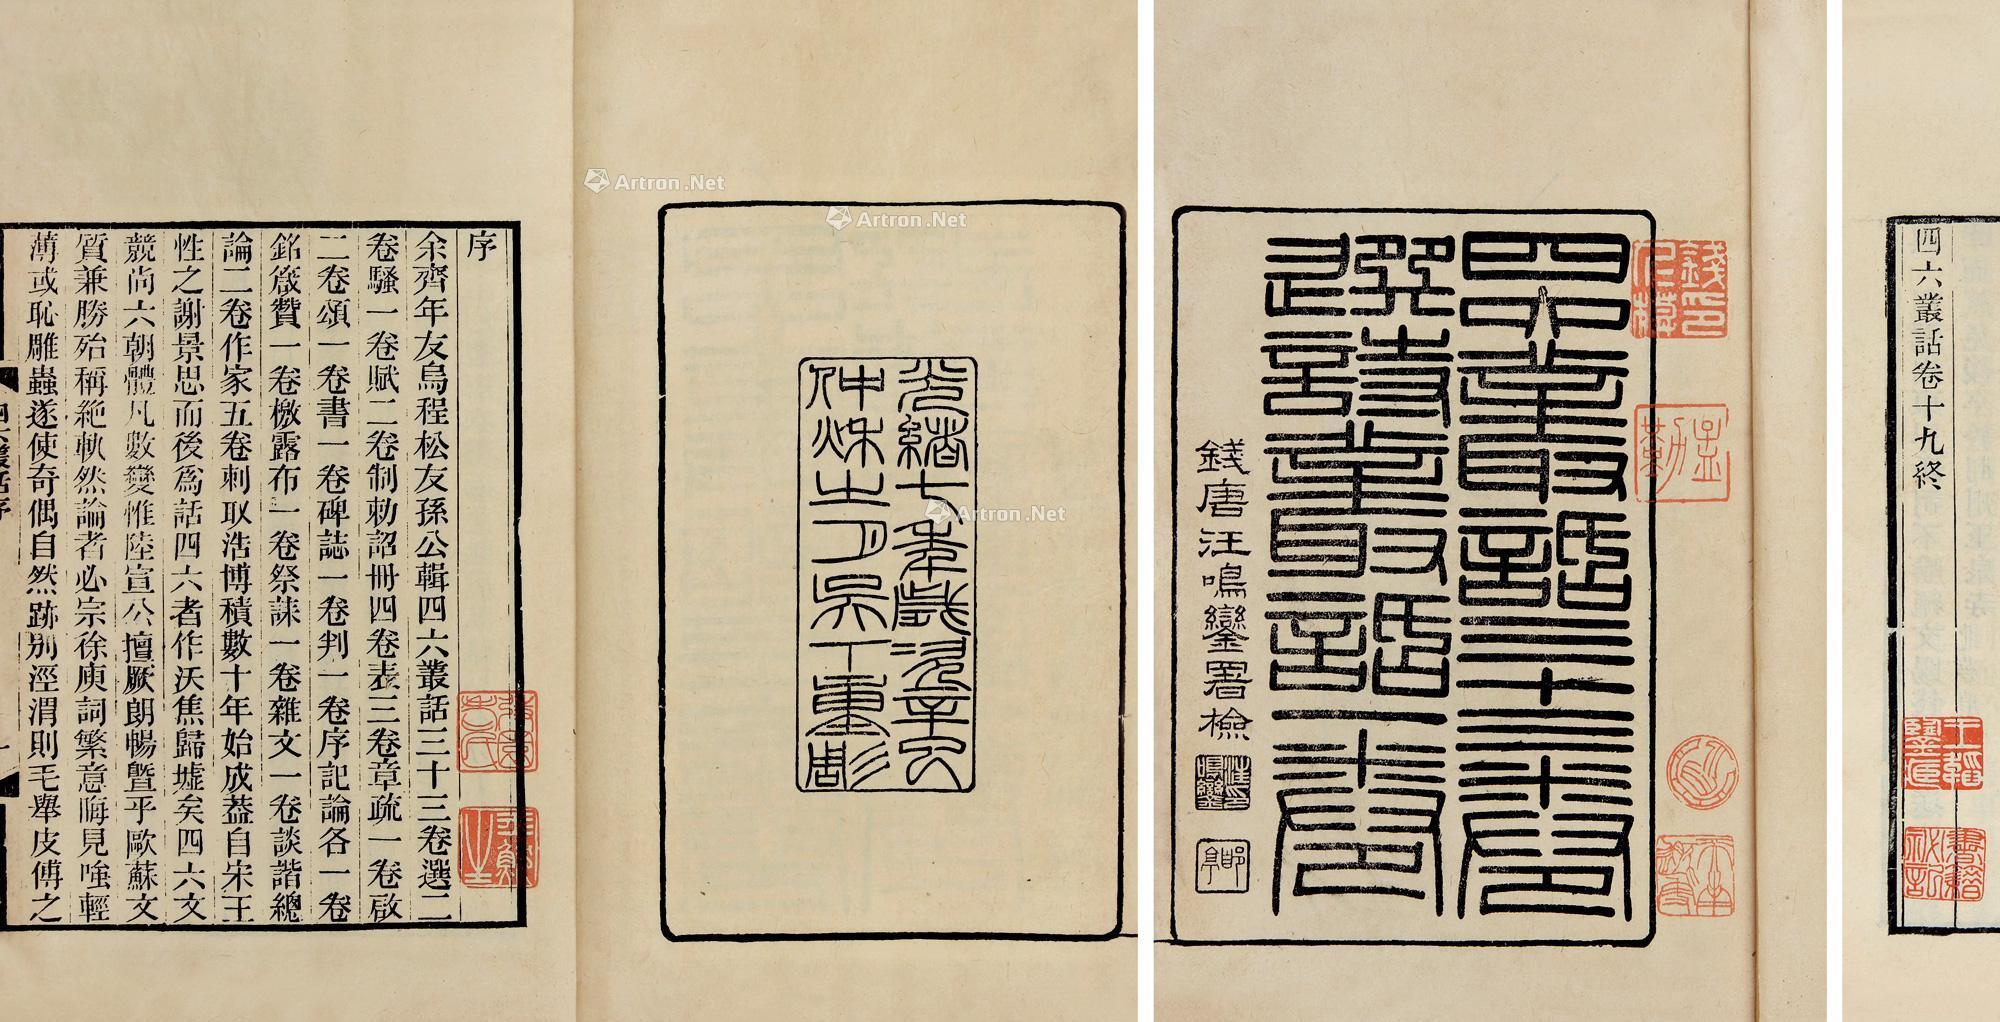 四六叢話卷十九終
四六叢話三十三卷
選詩叢話一卷
錢唐汪鳴鑾署檢
光緒七年歲次辛巳
仲秋之月吳下重彫
序
余齊年友烏程松友孫公輯四六叢話三十三卷選二
卷騷一卷賦二卷制勅詔冊四卷表三卷章疏一卷啟
二卷頌一卷書一卷碑誌一卷判一卷序記論各一卷
銘箴贊一卷檄露布一卷祭誄一卷雜文一卷談諧總
論二卷作家五卷刺取浩博積數十年始成葢自宋王
性之謝景思而後爲話四六者作沃焦歸墟矣四六文
競尚六朝體凡數變惟陸宣公擅厥朗暢曁乎歐蘇文
質兼勝殆稱絶軌然論者必宗徐庾詞繁意晦見嗤輕
薄或恥雕蟲遂使奇偶自然跡別涇渭則毛舉皮傅之
四六叢話序
一
Artron.Net
Artron.Net
Artron.Net